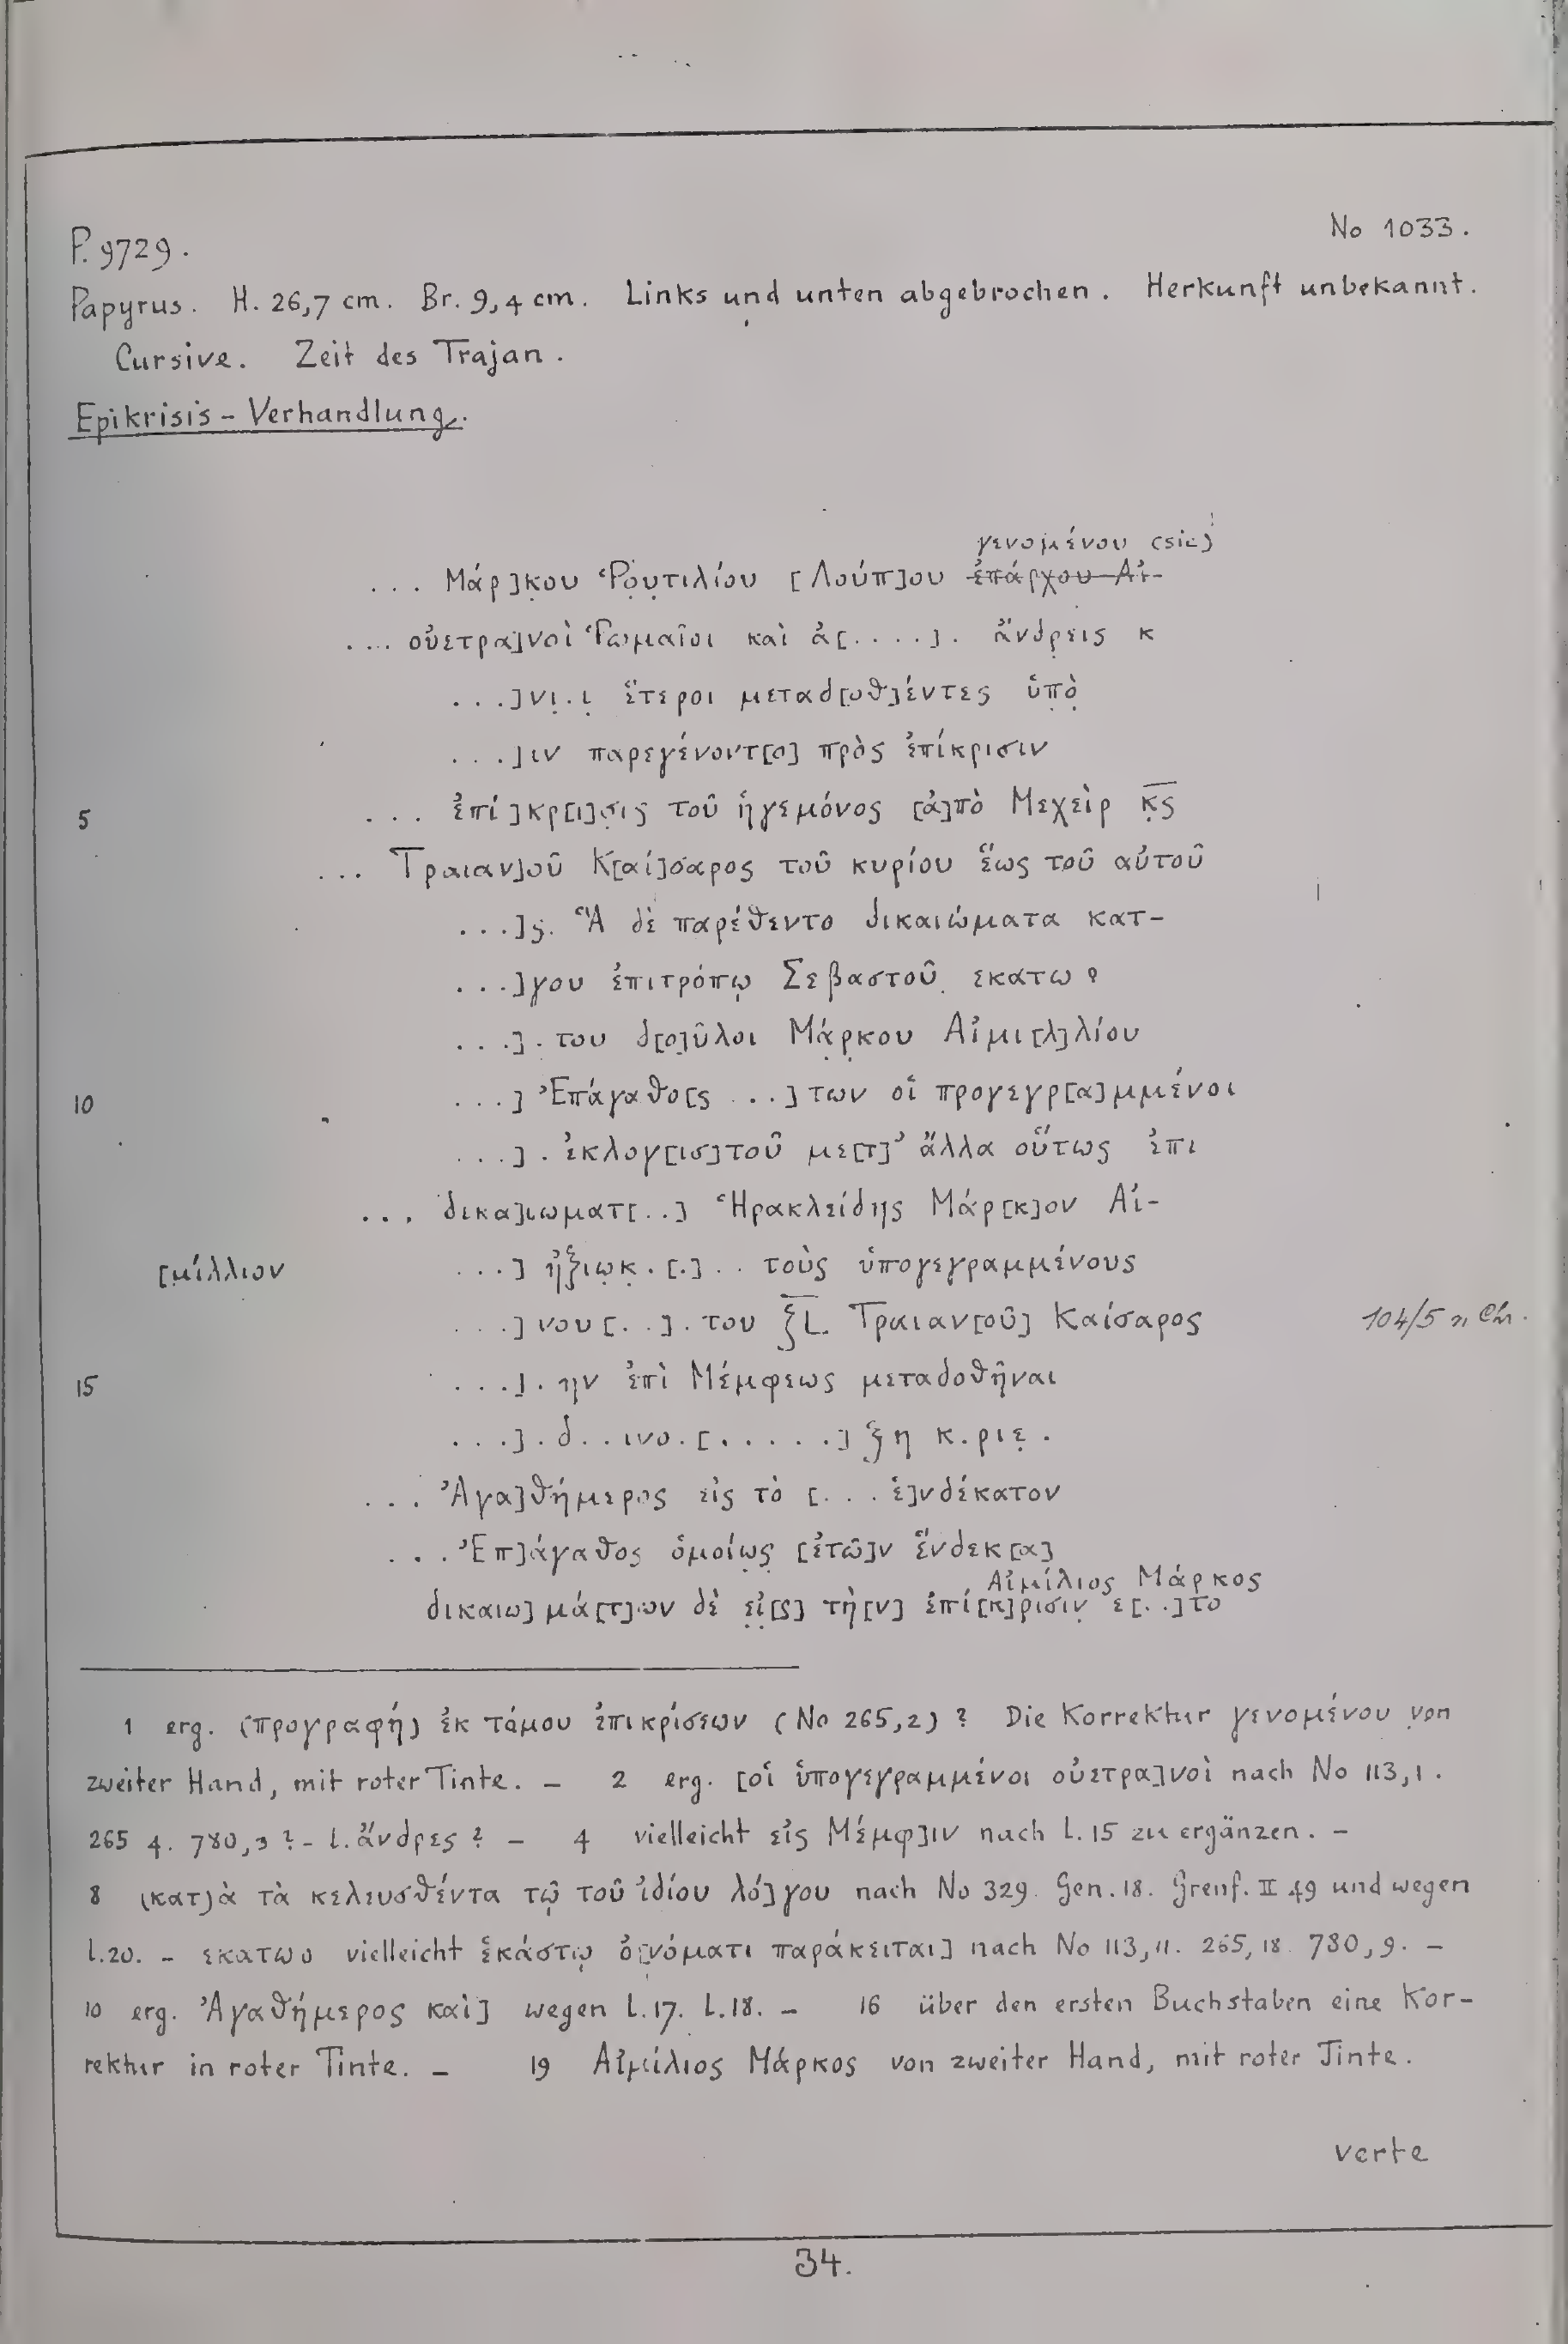 No 1033.
P. 9729.
Papyrus. H. 26,7 cm. Br. 9,4 cm. Links und unten abgebrochen. Herkunft unbekannt.
Cursive. Zeit des Trajan.
Epikrisis - Verhandlung.
γενομένου (sic)
... Μάρ]κου Ῥουτιλίου [Λούπ]ου ἐπάρχου Αἰ-
... οὐετρα]νοὶ Ῥωμαῖοι καὶ ἀ[....]. ἄνδρεις κ
...]νι.ι ἕτεροι μεταδ[οθ]έντες ὑπὸ
...]ιν παρεγένοντ[ο] πρὸς ἐπίκρισιν
5 ... ἐπί]κρ[ι]σις τοῦ ἡγεμόνος [ἀ]πὸ Μεχεὶρ κς
... Τραιαν]οῦ Κ[αί]σαρος τοῦ κυρίου ἕως τοῦ αὐτοῦ
...]ς. Ἃ δὲ παρέθεντο δικαιώματα κατ-
...]γου ἐπιτρόπῳ Σεβαστοῦ εκατω ο
...]. του δ[ο]ῦλοι Μάρκου Αἰμι[λ]λίου
10 ...] Ἐπάγαθο[ς ...]των οἱ προγεγρ[α]μμένοι
...]. ἐκλογ[ισ]τοῦ με[τ]’ ἄλλα οὕτως ἐπι
... δικα]ιωματ[..] Ἡρακλείδης Μάρ[κ]ον Αἰ-
[μίλλιον ...] ἠξιωκ.[.].. τοὺς ὑπογεγραμμένους
...]νου[..]. του ζL Τραιαν[οῦ] Καίσαρος 104/5 n Chr.
15 ...]. ην ἐπὶ Μέμφεως μεταδοθῆναι
...]. δ..ινο.[.....]ξη κ.ριε.
... Ἀγα]θήμερος εἰς τὸ [... ἑ]νδέκατον
... Ἐπ]άγαθος ὁμοίως [ἐτῶ]ν ἕνδεκ[α]
Αἰμίλιος Μάρκος
δικαιω]μά[τ]ων δὲ εἰ[ς] τὴ[ν] ἐπί[κ]ρισιν ε[..]το
1 erg. (προγραφή) ἐκ τόμου ἐπικρίσεων (No 265,2)? Die Korrektur γενομένου von
zweiter Hand, mit roter Tinte. - 2 erg. [οἱ ὑπογεγραμμένοι οὐετρα]νοὶ nach No 113,1.
265 4. 780,3? - l. ἄνδρες? - 4 vielleicht εἰς Μέμφ]ιν nach l. 15 zu ergänzen. -
8 (κατ)ὰ τὰ κελευσθέντα τῷ τοῦ ἰδίου λό]γου nach No 329. Gen. 18. Grenf. II 49 und wegen
l. 20. - εκατωο vielleicht ἑκάστῳ ὀ[νόματι παράκειται] nach No 113,11. 265,18. 780,9. -
10 erg. Ἀγαθήμερος καὶ] wegen l. 17. l. 18. - 16 über den ersten Buchstaben eine Kor-
rektur in roter Tinte. - 19 Αἰμίλιος Μάρκος von zweiter Hand, mit roter Tinte.
verte
34.